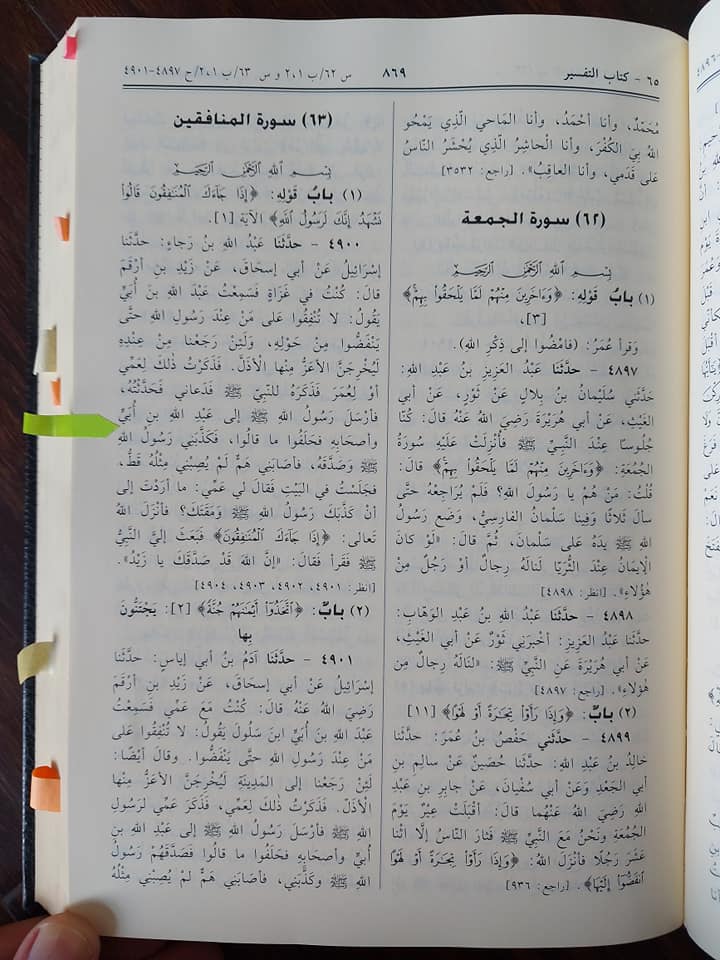 ٦٥ - كتاب التفسير
٨٦٩
س ٦٢/ب ٢،١ و س ٦٣/ب ٢،١/ح ٤٨٩٧-٤٩٠١
مُحَمَّدٌ، وأنا أحْمَدُ، وأنا المَاحي الَّذِي يَمْحُو
اللهُ بِيَ الكُفْرَ، وأنا الْحاشِرُ الَّذي يُحْشَرُ النَّاسُ
عَلى قَدَمي، وأنا العاقِبُ». [راجع: ٣٥٣٢]
(٦٢) سورة الجمعة
بِسْمِ اللهِ الرَّحْمٰنِ الرَّحِيمِ
(١) بابُ قَوْلِهِ: ﴿وَءَاخَرِينَ مِنْهُمْ لَمَّا يَلْحَقُوا۟ بِهِمْ﴾
[٣]،
وَقرأ عُمَرُ: (فامْضُوا إلى ذِكْرِ اللهِ).
٤٨٩٧ - حدَّثَنا عَبْدُ العَزِيزِ بنُ عَبْدِ اللهِ:
حَدَّثَني سُلَيْمانُ بنُ بِلالٍ عَنْ ثَوْرٍ، عَنْ أبي
الغَيْثِ، عَنْ أبي هُرَيْرَةَ رَضِيَ اللهُ عَنْهُ قالَ: كُنَّا
جُلُوسًا عِنْدَ النَّبِيِّ ﷺ فَأُنْزِلَتْ عَلَيْهِ سُورَةُ
الجُمُعَةِ: ﴿وَءَاخَرِينَ مِنْهُمْ لَمَّا يَلْحَقُوا۟ بِهِمْ﴾ قالَ:
قُلْتُ: مَنْ هُمْ يا رَسُولَ اللهِ؟ فَلَمْ يُرَاجِعْهُ حتَّى
سألَ ثَلاثًا وَفِينا سَلْمانُ الفارِسِيُّ، وَضَع رَسُولُ
اللهِ ﷺ يدَهُ عَلى سَلْمانَ، ثُمَّ قالَ: «لَوْ كانَ
الْإيمَانُ عِنْدَ الثُّرَيَّا لَنالَهُ رِجالٌ أوْ رَجُلٌ مِنْ
هٰؤُلاءِ». [انظر: ٤٨٩٨]
٤٨٩٨ - حدَّثَنا عَبْدُ اللهِ بنُ عَبْدِ الوَهَّابِ:
حَدَّثَنا عَبْدُ العَزِيزِ: أخْبَرَنِي ثَوْرٌ عَنْ أبي الغَيْثِ،
عَنْ أبي هُرَيْرَةَ عَنِ النَّبِيِّ ﷺ: «لَنالَهُ رِجالٌ مِن
هٰؤُلاءِ». [راجع: ٤٨٩٧]
(٢) بابٌ: ﴿وَإِذَا رَأَوْا۟ تِجَـٰرَةً أَوْ لَهْوًا﴾ [١١]
٤٨٩٩ - حدَّثَني حَفْصُ بنُ عُمَرَ: حدَّثَنا
خالِدُ بنُ عَبْدِ اللهِ: حدَّثَنا حُصَيْنٌ عَنْ سالِمِ بنِ
أبي الجَعْدِ وَعَنْ أبي سُفْيانَ، عَنْ جابِرِ بنِ عَبْدِ
اللهِ رَضِيَ اللهُ عَنْهُمَا قالَ: أقْبَلَتْ عِيرٌ يَوْمَ
الجُمُعَةِ ونَحْنُ مَعَ النَّبِيِّ ﷺ فَثارَ النَّاسُ إلَّا اثْنَا
عَشَرَ رَجُلًا فأنْزَلَ اللهُ: ﴿وَإِذَا رَأَوْا۟ تِجَـٰرَةً أَوْ لَهْوًا
ٱنفَضُّوٓا۟ إِلَيْهَا﴾. [راجع: ٩٣٦]
(٦٣) سورة المنافقين
بِسْمِ اللهِ الرَّحْمٰنِ الرَّحِيمِ
(١) بابُ قَوْلِهِ: ﴿إِذَا جَآءَكَ ٱلْمُنَـٰفِقُونَ قَالُوا۟
نَشْهَدُ إِنَّكَ لَرَسُولُ ٱللَّهِ﴾ الآيَة [١].
٤٩٠٠ - حدَّثَنا عَبْدُ اللهِ بْنُ رَجاءٍ: حدَّثَنا
إسْرَائِيلُ عَنْ أبي إسْحَاقَ، عَنْ زَيْدِ بنِ أرْقَمَ
قالَ: كُنْتُ في غَزَاةٍ فَسَمِعْتُ عَبْدَ اللهِ بنَ أُبَيٍّ
يَقُولُ: لا تُنْفِقُوا عَلى مَنْ عِنْدَ رَسُولِ اللهِ حتَّى
يَنْفَضُّوا مِنْ حَوْلِهِ، وَلَئِنْ رَجَعْنا مِنْ عِنْدِهِ
لَيُخْرِجَنَّ الأعَزُّ مِنْها الأذَلَّ. فَذَكَرْتُ ذٰلكَ لِعَمِّي
أوْ لِعُمَرَ فَذَكَرَهُ للنَّبيِّ ﷺ فَدَعاني فَحَدَّثْتُهُ،
فأرْسَلَ رَسُولُ اللهِ ﷺ إلى عَبْدِ اللهِ بنِ أُبَيٍّ
وأصحَابِهِ فَحَلَفُوا ما قالُوا، فَكَذَّبَني رَسُولُ اللهِ
ﷺ وَصَدَّقَهُ، فأصَابَني هَمٌّ لَمْ يُصِبْني مِثْلُهُ قَطُّ،
فجَلَسْتُ في البَيْتِ فَقالَ لي عَمِّي: ما أرَدْتَ إلى
أنْ كَذَّبَكَ رَسُولُ اللهِ ﷺ وَمَقَتَكَ؟ فأنْزَلَ اللهُ
تَعالى: ﴿إِذَا جَآءَكَ ٱلْمُنَـٰفِقُونَ﴾ فَبَعَثَ إلَيَّ النَّبِيُّ
ﷺ فَقَرأ فَقالَ: «إنَّ اللهَ قَدْ صَدَّقَكَ يا زَيْدُ».
[انظر: ٤٩٠١، ٤٩٠٢، ٤٩٠٣، ٤٩٠٤]
(٢) بابٌ: ﴿ٱتَّخَذُوٓا۟ أَيْمَـٰنَهُمْ جُنَّةً﴾ [٢]: يَجْتَنُّونَ
بِها
٤٩٠١ - حدَّثَنا آدَمُ بنُ أبي إياسٍ: حدَّثَنا
إسْرَائِيلُ عَنْ أبي إسحَاقَ، عَنْ زَيْدِ بنِ أرْقَمَ
رَضِيَ اللهُ عَنْهُ قالَ: كُنْتُ مَعَ عَمِّي فَسَمِعْتُ
عَبْدَ اللهِ بنَ أُبَيٍّ ابنَ سَلُولَ يَقُولُ: لا تُنْفِقُوا عَلى
مَنْ عِنْدَ رَسُولِ اللهِ حتَّى يَنْفَضُّوا. وقالَ أيْضًا:
لَئِنْ رَجَعْنا إلى المَدِينَةِ لَيُخْرِجَنَّ الأعَزُّ مِنْها
الأذَلَّ. فَذَكَرْتُ ذٰلكَ لِعَمِّي، فَذَكَرَ عَمِّي لرَسُولِ
اللهِ ﷺ فأرْسَلَ رَسُولُ اللهِ ﷺ إلى عَبْدِ اللهِ بنِ
أُبَيٍّ وأصحَابِهِ فَحَلَفُوا ما قالُوا فَصَدَّقَهُمْ رَسُولُ
اللهِ ﷺ وكَذَّبَني، فأصَابَني هَمٌّ لَمْ يُصِبْني مِثْلُهُ